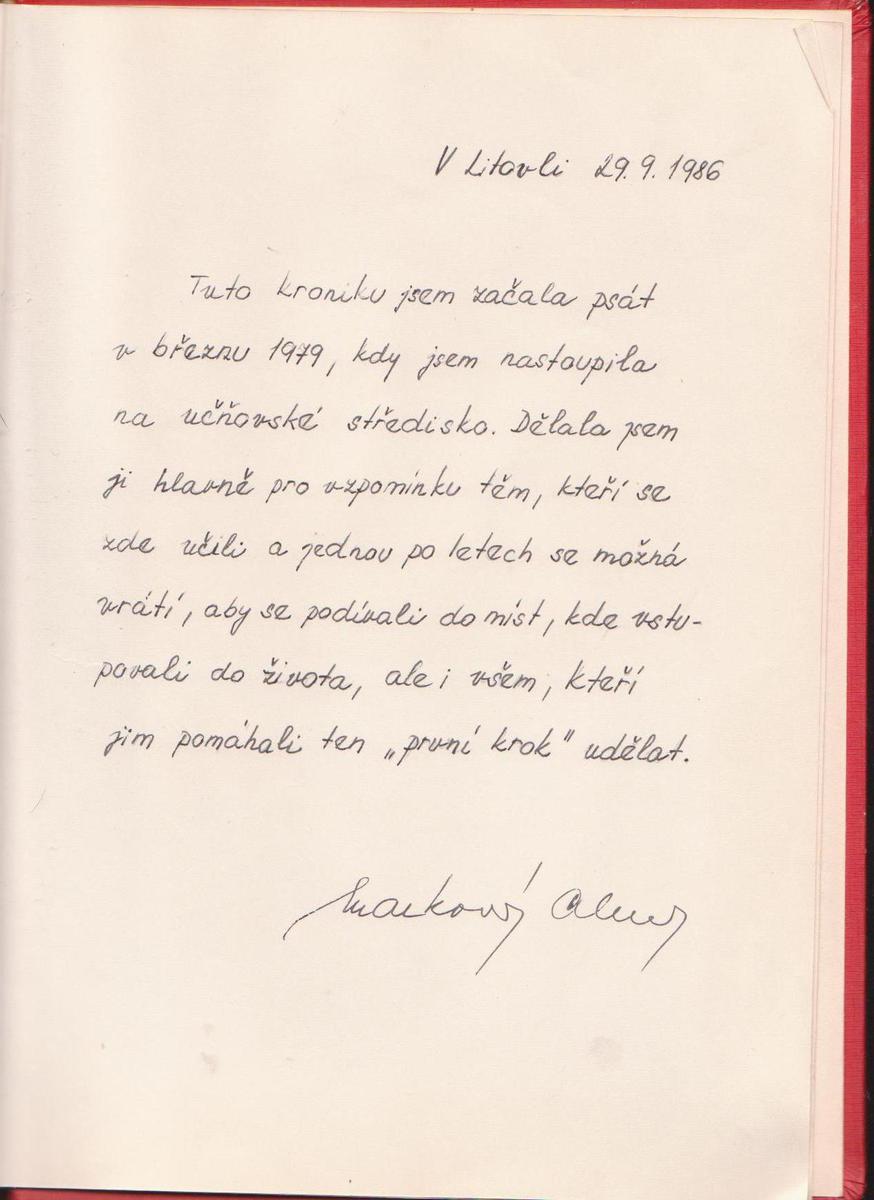 V Litovli 29.9.1986
Tuto kroniku jsem začala psát
v březnu 1979, kdy jsem nastoupila
na učňovské středisko. Dělala jsem
ji hlavně pro vzpomínku těm, kteří se
zde učili a jednou po letech se možná
vrátí, aby se podívali do míst, kde vstu-
povali do života, ale i všem, kteří
jim pomáhali ten „první krok" udělat.